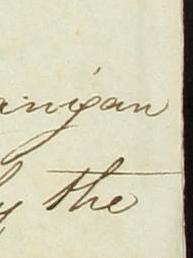 anigan
by the